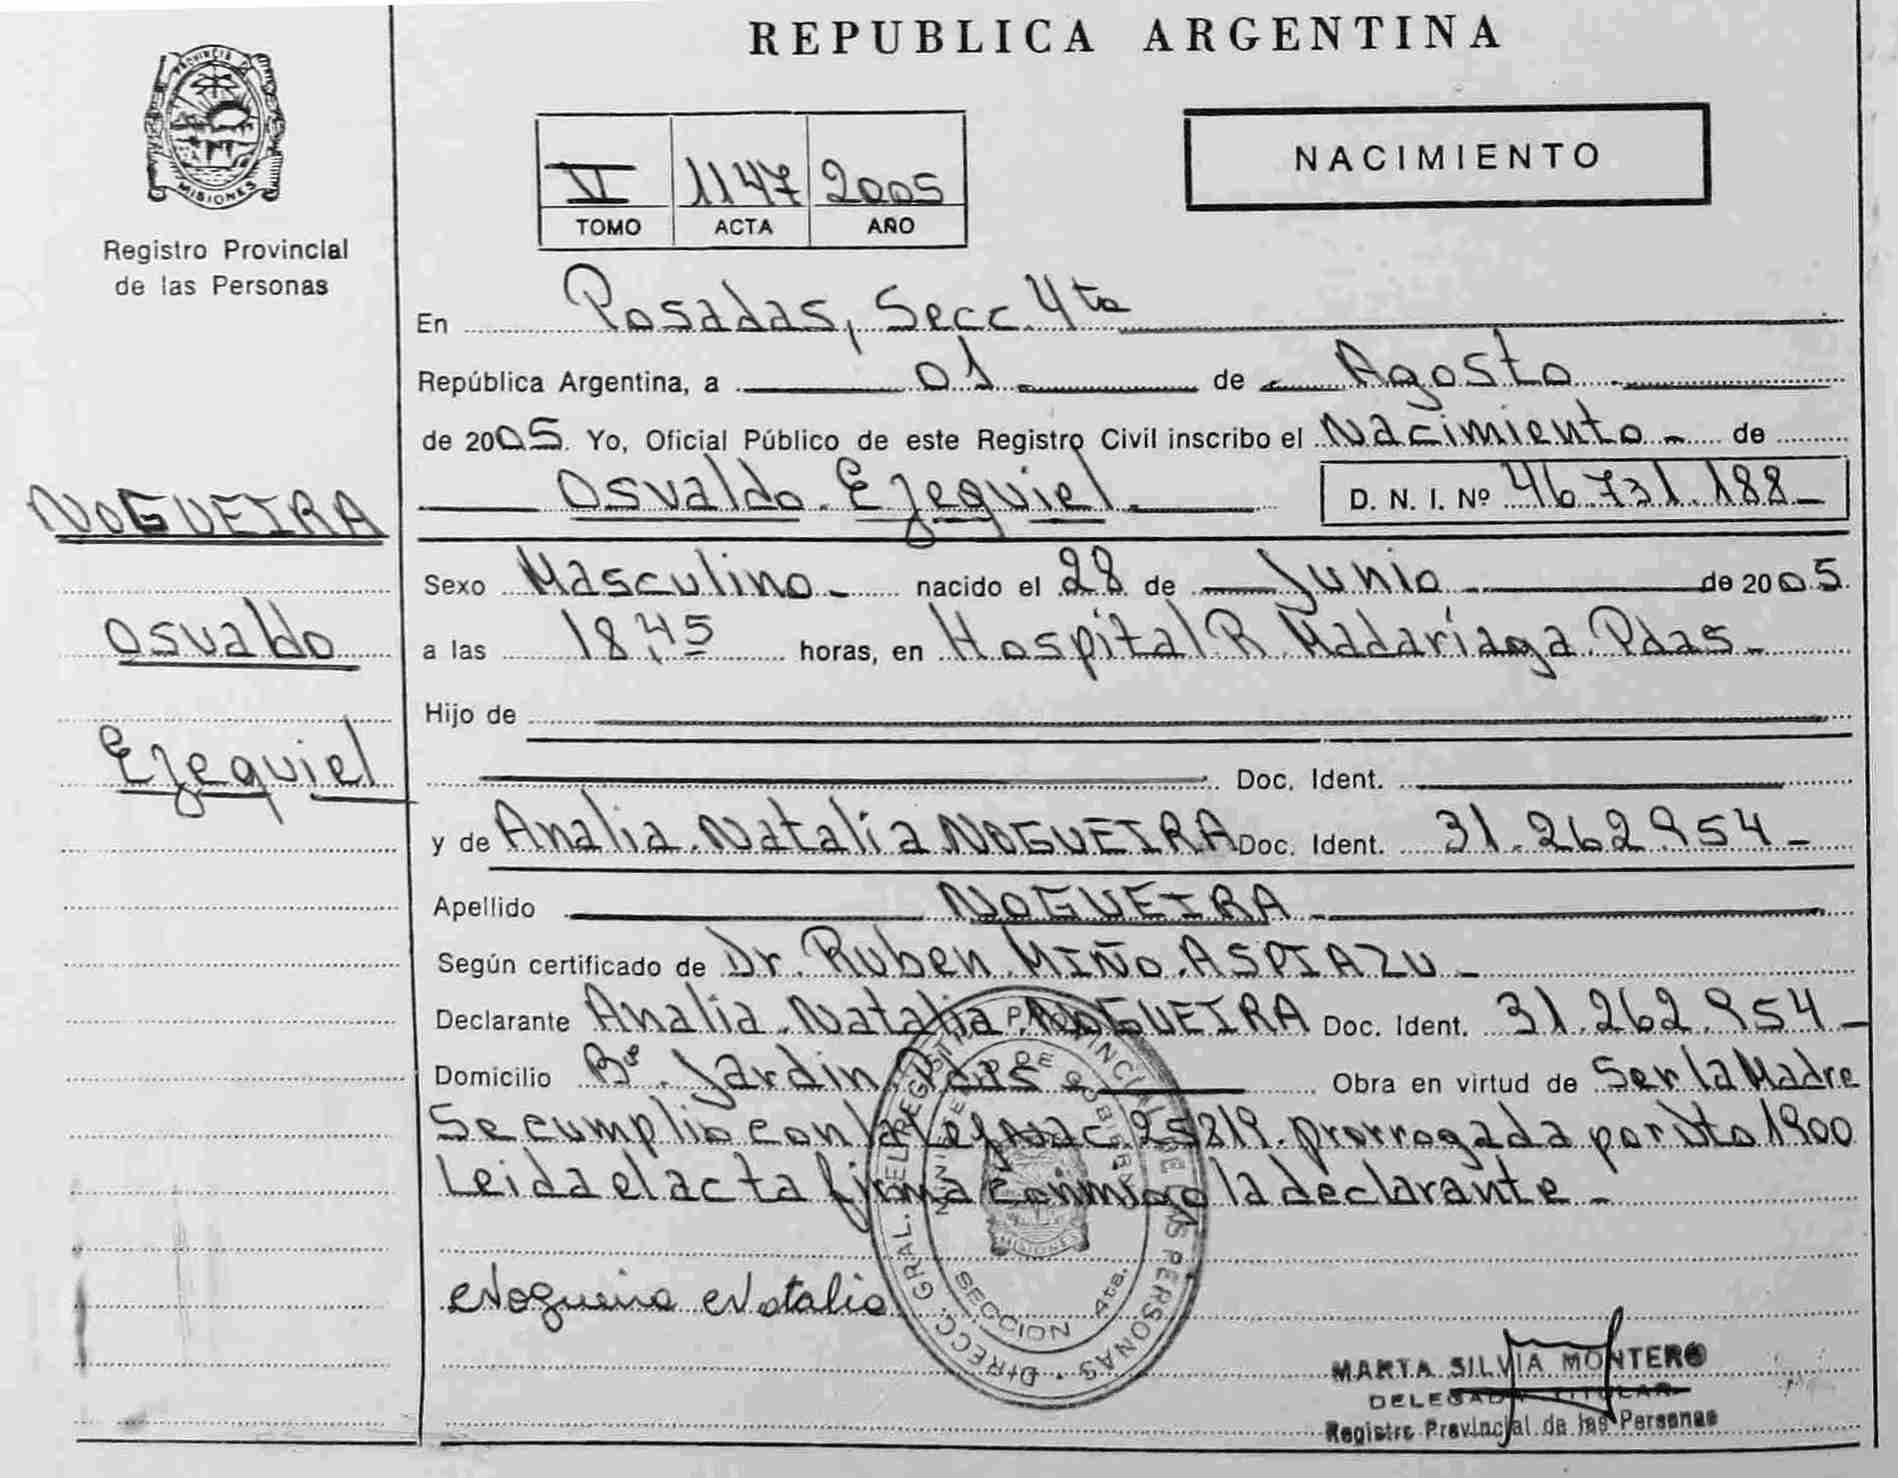 REPUBLICA ARGENTINA
PROVINCIA DE
MISIONES
Registro Provincial
de las Personas
VI 1147 2005
TOMO ACTA AÑO
NACIMIENTO
En Posadas, Secc. 4ta
República Argentina, a 01 de Agosto
de 2005. Yo, Oficial Público de este Registro Civil inscribo el Nacimiento de
Osvaldo Ezequiel D. N. I. Nº 46.731.188
NOGUEIRA
Osvaldo
Ezequiel
Sexo Masculino nacido el 28 de Junio de 2005.
a las 18,45 horas, en Hospital R. Madariaga. Pdas
Hijo de
Doc. Ident.
y de Analia Natalia NOGUEIRA Doc. Ident. 31.262.954
Apellido NOGUEIRA
Según certificado de Dr. Ruben MIÑO ASPIAZU
Declarante Analia Natalia NOGUEIRA Doc. Ident. 31.262.954
Domicilio Bº Jardin Pdas Obra en virtud de Ser la Madre
Se cumplio con la Ley Nac. 25819. prorrogada por Dto 1900
Leida el acta firma conmigo la declarante
Nogueira Natalia
DIRECC. GRAL. DEL REGISTRO PROVINCIAL DE LAS PERSONAS
MINISTERIO DE GOBIERNO
MISIONES
SECCION 4ta.
MARTA SILVIA MONTERO
DELEGADA TITULAR
Registro Provincial de las Personas